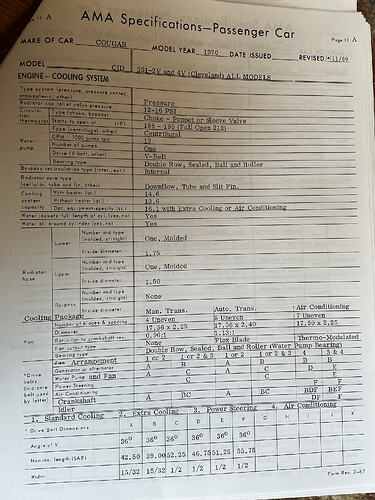 AMA Specifications—Passenger Car
Page 11 A
MAKE OF CAR COUGAR MODEL YEAR 1970 DATE ISSUED REVISED •11/69
MODEL CID 351-2V and 4V (Cleveland) ALL MODELS
ENGINE — COOLING SYSTEM
Type system (pressure, pressure vented, atmospheric, other) Pressure
Radiator cap relief valve pressure 12-16 PSI
Circulation thermostat Type (choke, bypass) Choke - Poppet or Sleeve Valve
Starts to open at (°F) 188 - 195 (Full Open 212)
Water pump Type (centrifugal, other) Centrifugal
GPM 1000 pump rpm 12
Number of pumps One
Drive (V-belt, other) V-Belt
Bearing type Double Row, Sealed, Ball and Roller
By-pass recirculation type (inter., ext.) Internal
Radiator core type (cellular, tube and fin, other) Downflow, Tube and Slit Fin.
Cooling system capacity With heater (qt.) 14.6
Without heater (qt.) 13.6
Opt. equipment-specify (qt.) 16.1 with Extra Cooling or Air Conditioning
Water jackets full length of cyl. (yes, no) Yes
Water all around cylinder (yes, no) Yes
Radiator hose Lower Number and type (molded, straight) One, Molded
Inside diameter 1.75
Upper Number and type (molded, straight) One, Molded
Inside diameter 1.50
By-pass Number and type (molded, straight) None
Inside diameter
Cooling Package Man. Trans. Auto. Trans. Air Conditioning
Fan Number of blades & spacing 4 Uneven 5 Uneven 7 Uneven
Diameter 17.56 x 2.25 17.56 x 2.40 17.50 x 2.25
Ratio fan to crankshaft rev. 0.96:1
Fan cutout type None Flex Blade Thermo-Modulated
Bearing type Double Row, Sealed, Ball and Roller (Water Pump Bearing)
Arrangement 1 or 2 1 or 2 & 3 1 or 2 1 or 2 & 3 4 3 & 4
*Drive belts (indicate belt used by letter)
Generator or alternator A B A B D B
Water Pump and Fan A A
Power Steering
Air Conditioning
Crankshaft A BC A BC BDF BEF
Idler DF F
1. Standard Cooling 2. Extra Cooling 3. Power Steering 4. Air Conditioning
* Drive Belt Dimensions A B C D E F G H I J K
Angle of V 36° 36° 36° 36° 36° 36°
Nominal length (SAE) 42.50 39.00 52.25 46.75 51.25 55.75
Width 15/32 15/32 1/2 1/2 1/2 1/2
Form Rev. 3-67